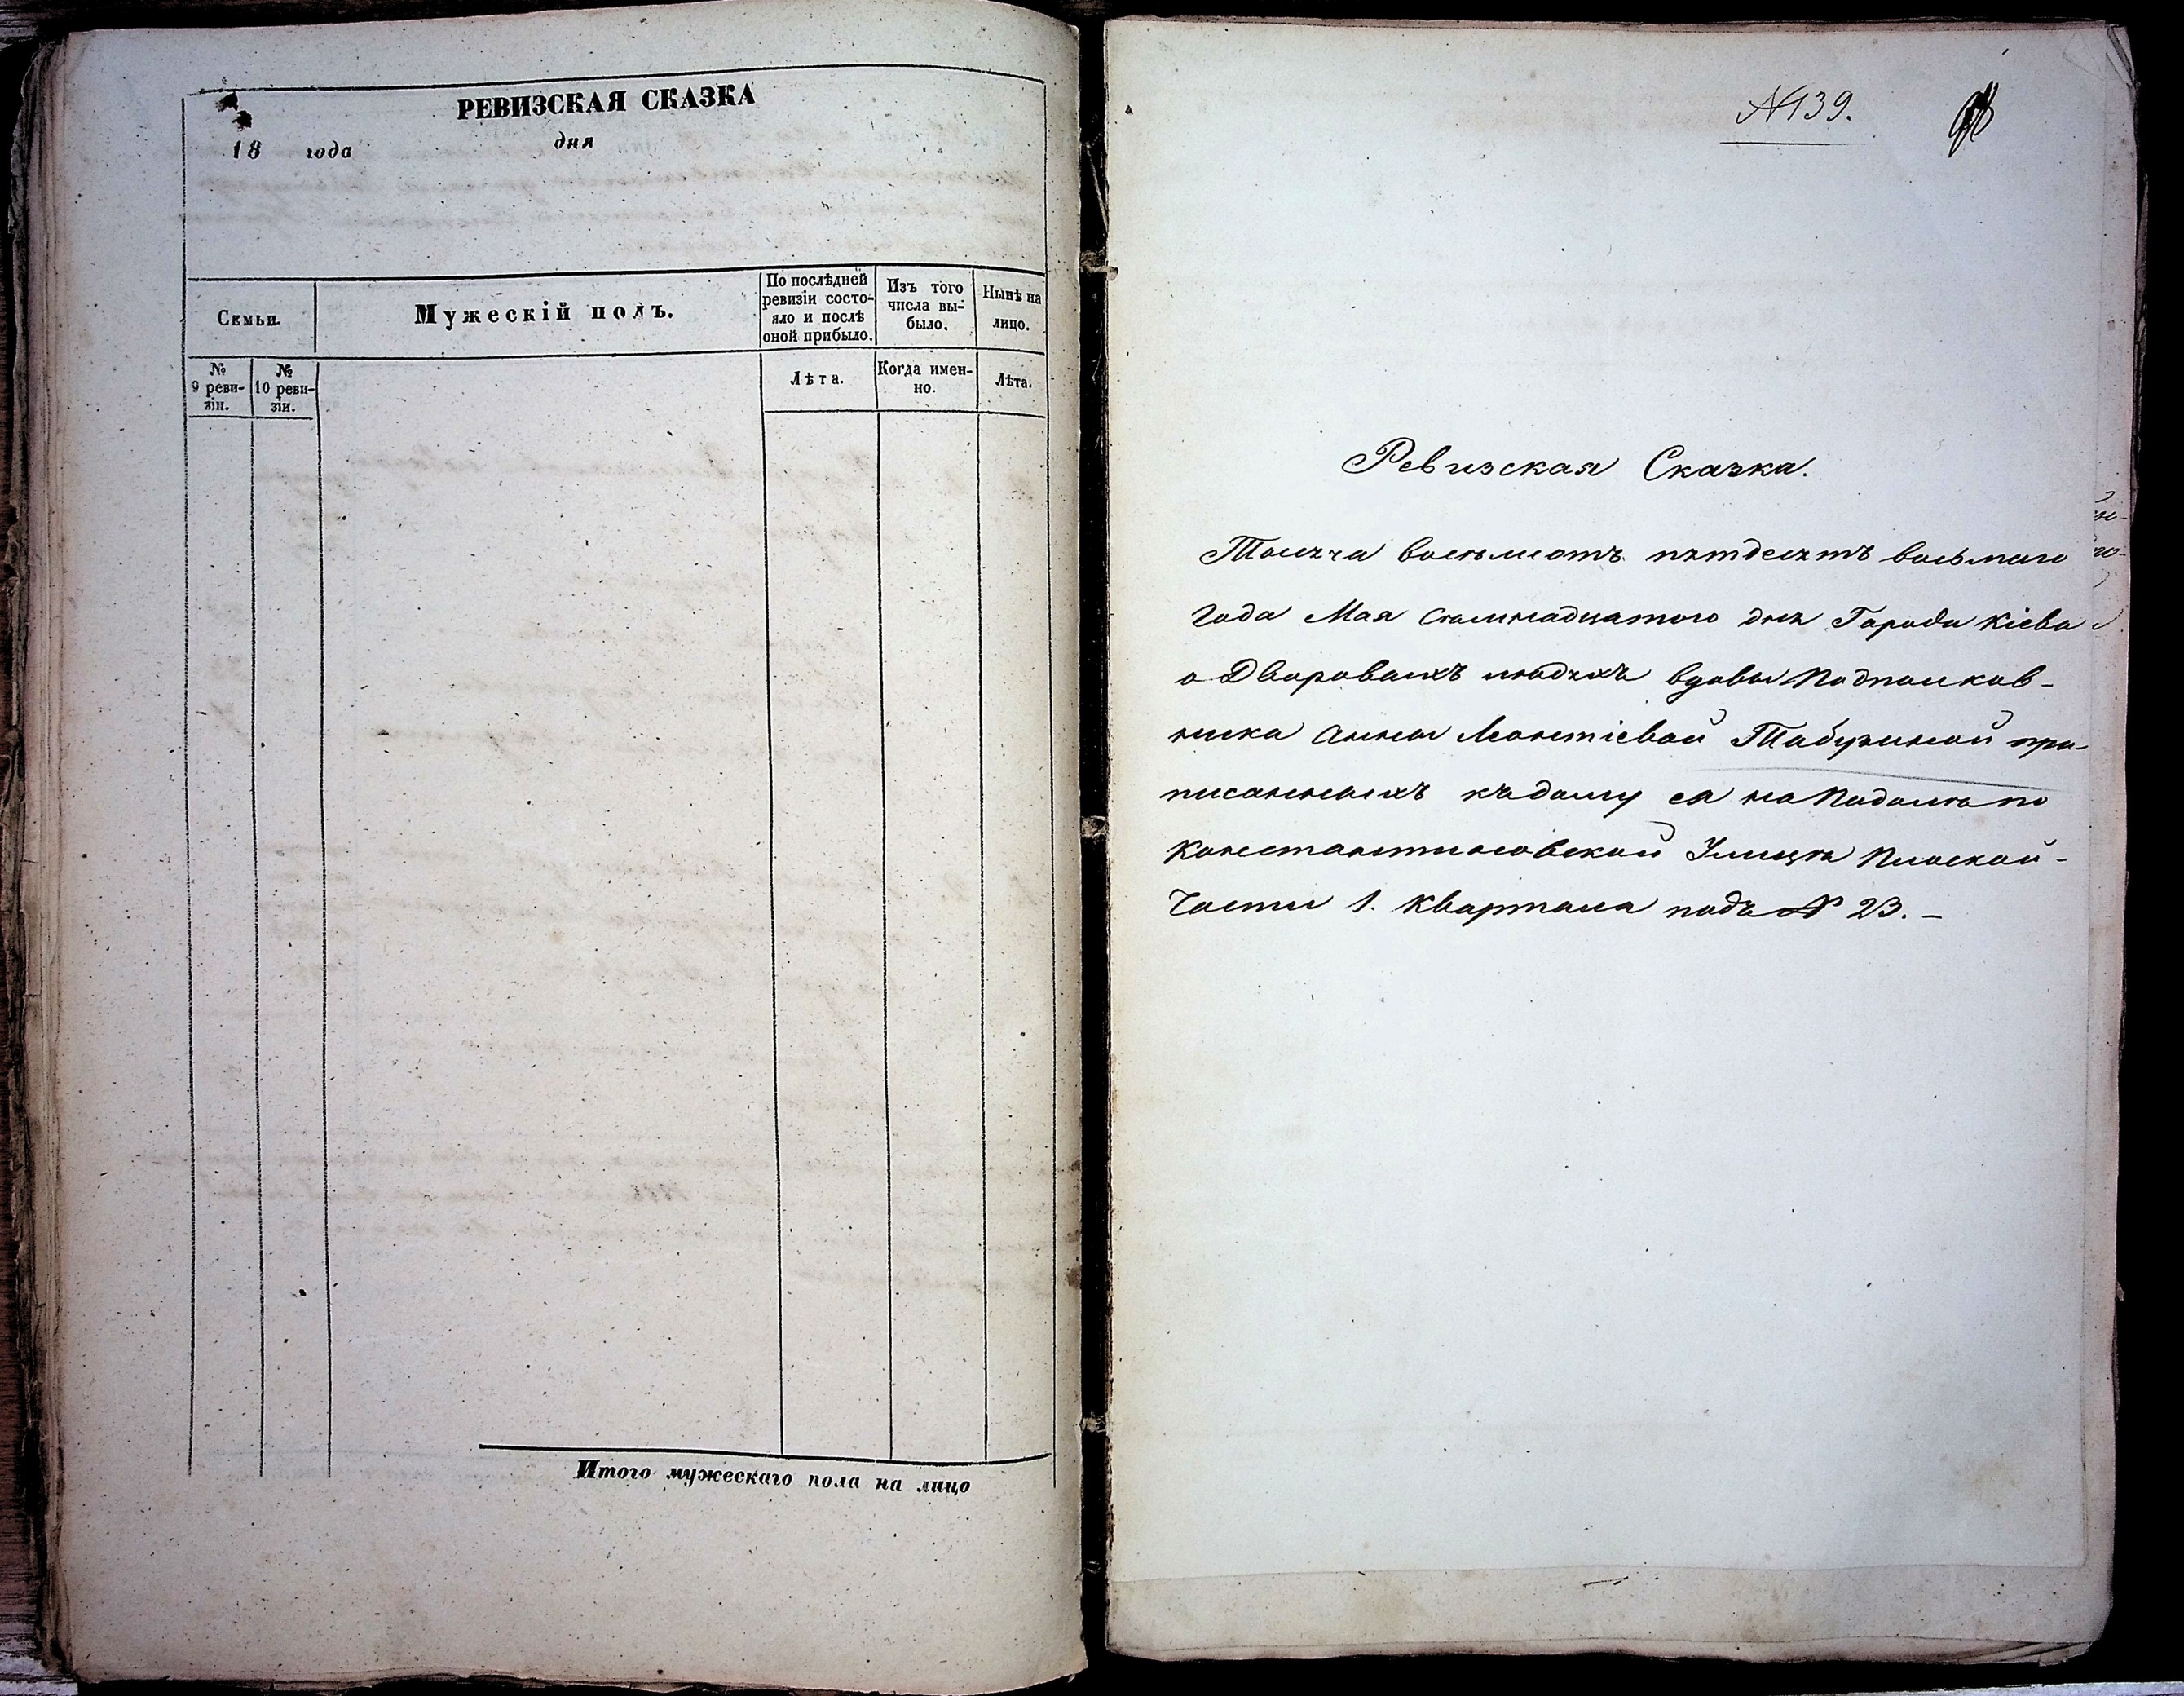 РЕВИЗСКАЯ СКАЗКА
18 года дня
Семьи.
Мужескій полъ.
По послѣдней ревизіи состо-
яло и послѣ
оной прибыло.
Изъ того
числа вы-
было.
Нынѣ на
лицо.
№
9 реви-
зіи.
№
10 реви-
зіи.
Лѣта.
Когда имен-
но.
Лѣта.
Итого мужескаго пола на лицо
№139.
Ревизская Сказка.
Тысяча восемьсотъ пятдесятъ восьмаго
года Мая дня Города Кіева
о Дворовыхъ людяхъ вдовы Подполков-
ника Анны Леонтіевой при-
писанныхъ къ дому ея на Подолѣ по
Константиновской Улицѣ Плоской-
Части 1. Квартала подъ № 23. –